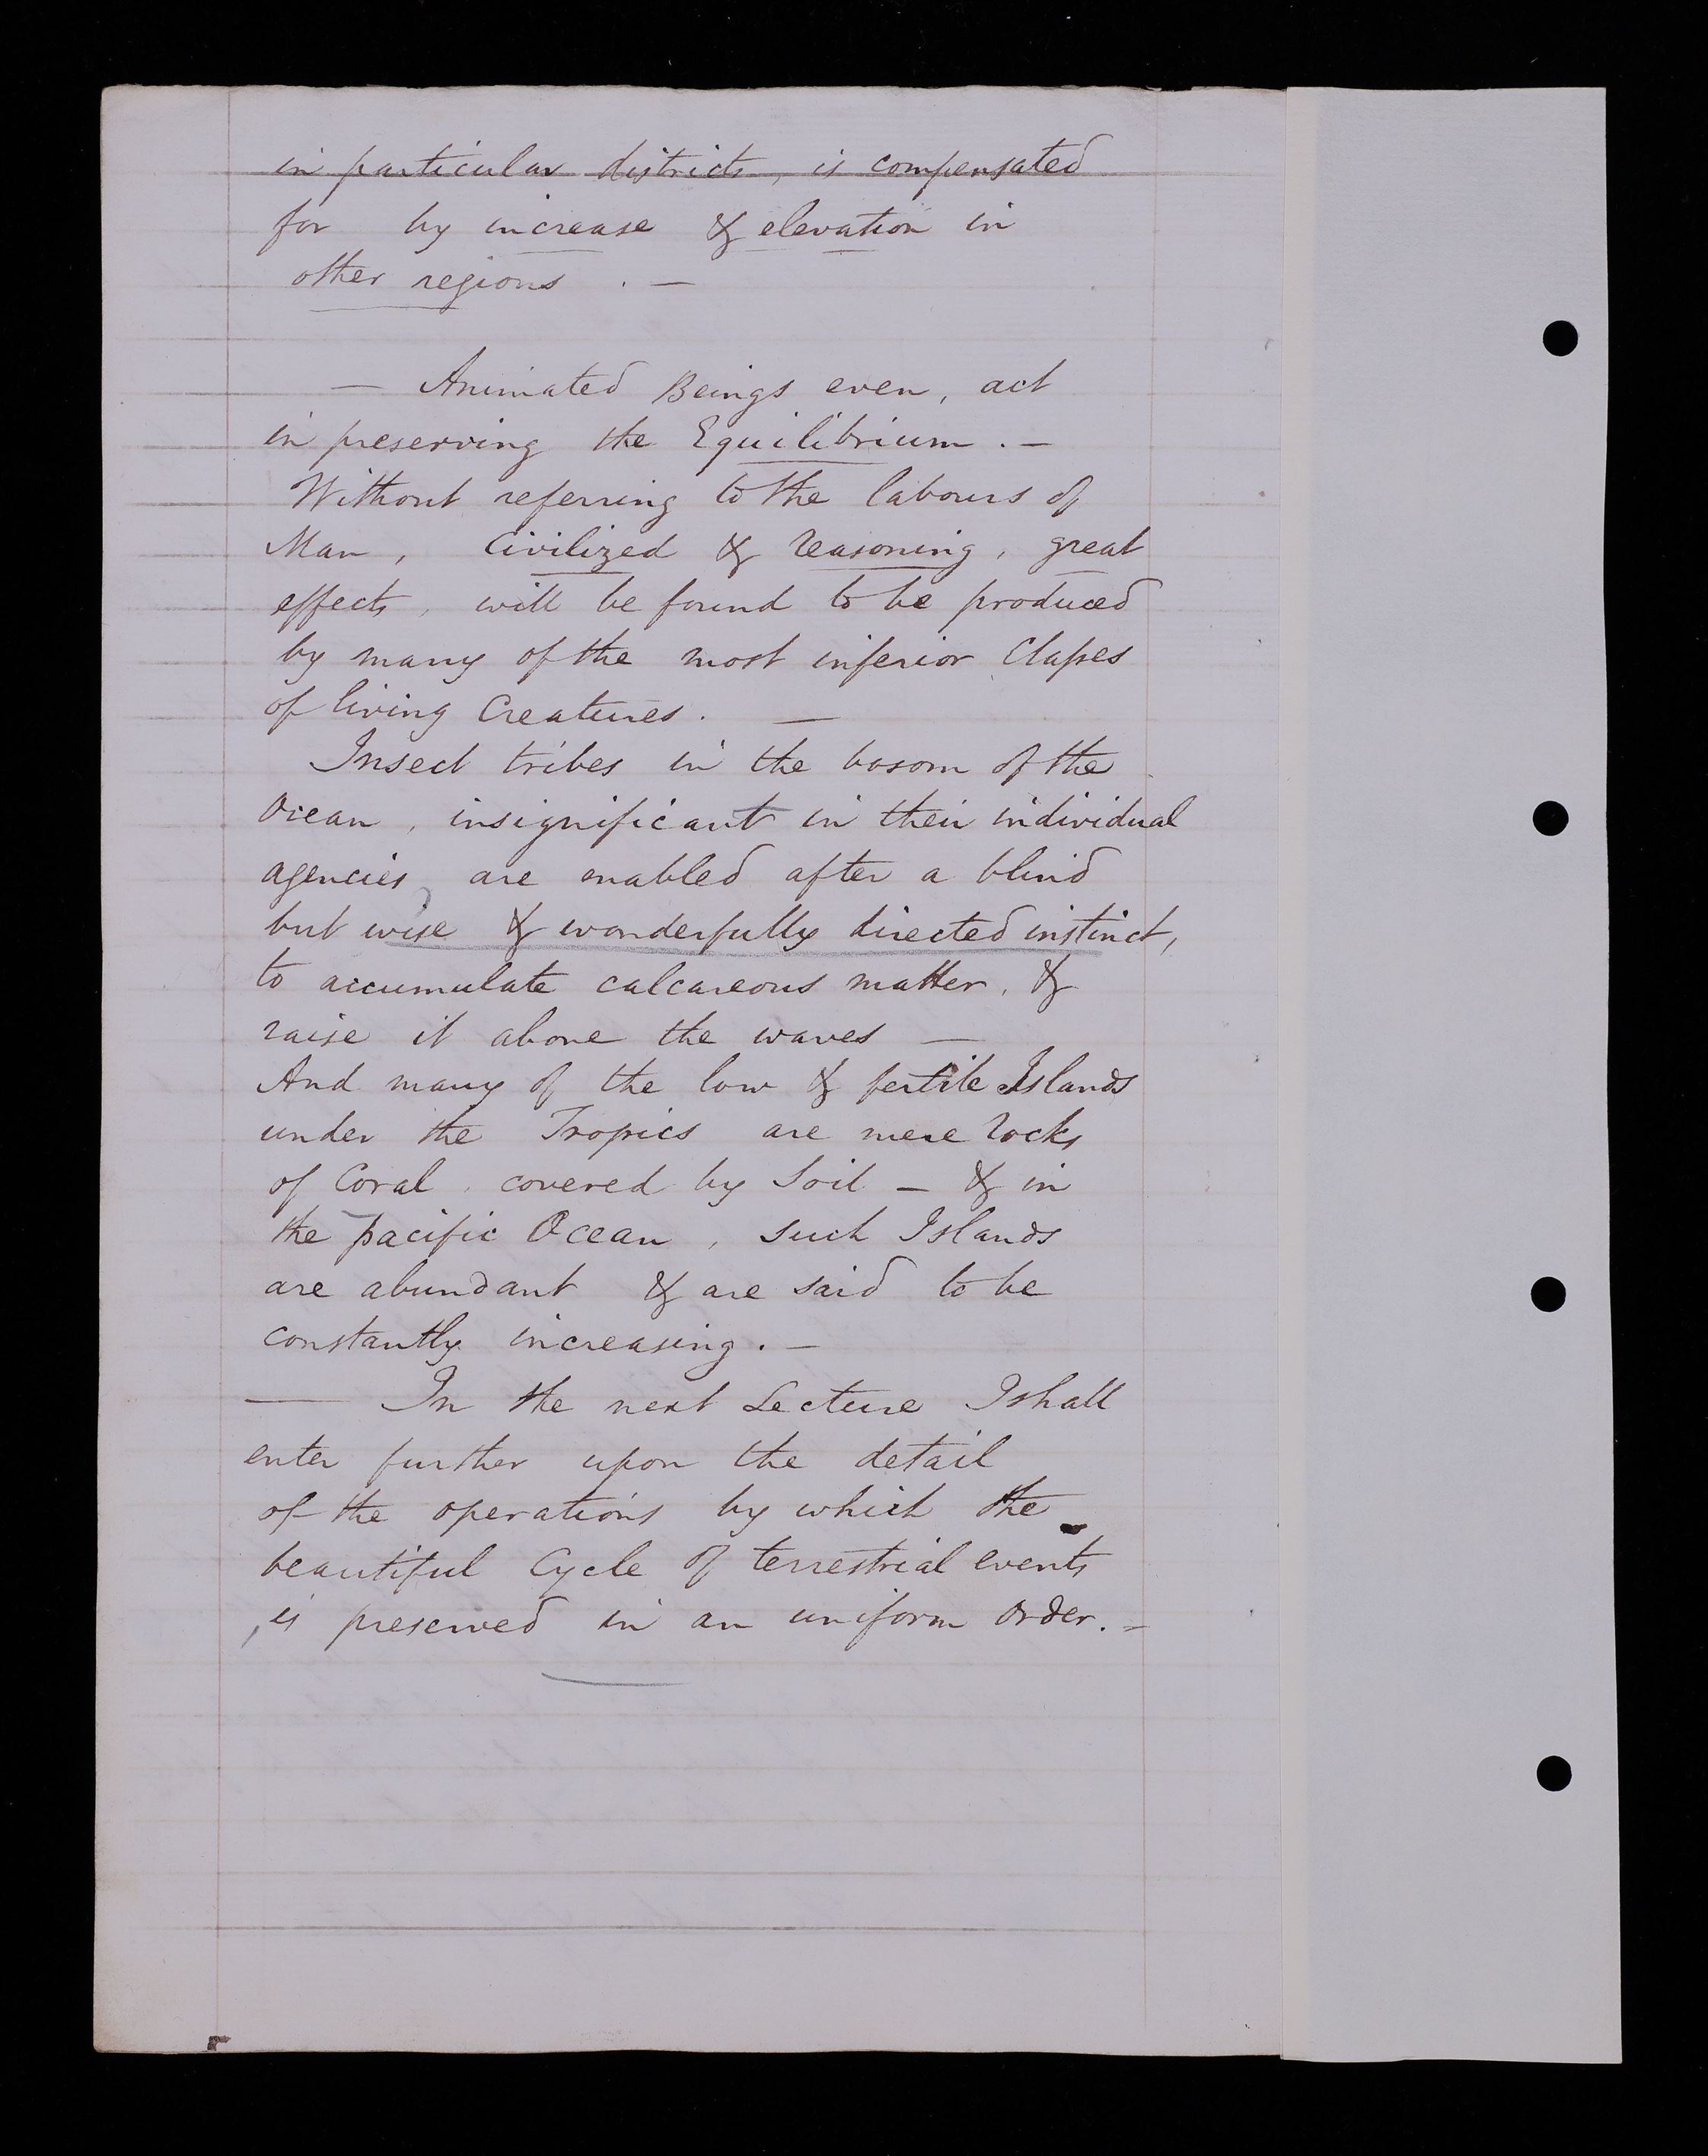 in particular districts, is compensated
for by increase & elevation in
other regions . —
— Animated Beings even, act
in preserving the Equilibrium . —
Without referring to the labours of
Man, Civilized & reasoning, great
effects, will be found to be produced
by many of the most inferior Classes
of living Creatures. —
Insect tribes in the bosom of the
Ocean, insignificant in their individual
agencies, are enabled after a blind
but wise & wonderfully directed instinct,
to accumulate calcareous matter, &
raise it above the waves —
And many of the low & fertile Islands
under the Tropics are mere rocks
of Coral, covered by Soil — & in
the pacific Ocean, such Islands
are abundant & are said to be
constantly increasing. —
— In the next Lecture I shall
enter further upon the detail
of the operations by which the
beautiful Cycle of terrestrial events
, is preserved in an uniform order. —